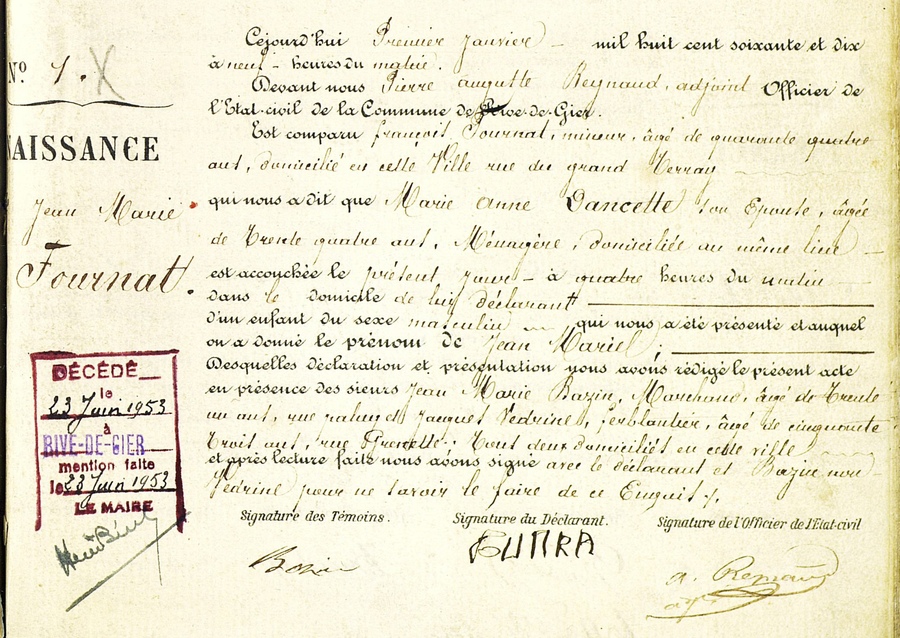 Nº 1.
NAISSANCE
Jean Marie
Fournat.
DÉCÉDÉ
le
23 Juin 1953
à
RIVE-DE-GIER
mention faite
le 23 Juin 1953
LE MAIRE
Cejourd'hui Premier Janvier mil huit cent soixante et dix
à neuf heures du matin.
Devant nous Pierre auguste Reynaud, adjoint Officier de
l'Etat-civil de la Commune de Rive-de-Gier.
Est comparu françois Fournat, mineur, âgé de quarante quatre
ans, domicilié en cette Ville rue du grand Verray
qui nous a dit que Marie Anne Dancette son Epouse, âgée
de Trente quatre ans, Ménagère, domiciliée au même lieu
est accouchée le présent Jour à quatre heures du matin
dans le domicile de lui déclarant
d'un enfant du sexe masculin qui nous a été présenté et auquel
on a donné le prénom de Jean Marie;
Desquelles déclaration et présentation nous avons rédigé le présent acte
en présence des sieurs Jean Marie Bazin, Marchand, âgé de Trente
un ans, rue et Jacques Vedrine, ferblantier, âgé de cinquante
Trois ans, rue Grenette; Tous deux domiciliés en cette ville
et après lecture faite nous avons signé avec le déclarant et Bazin non
Vedrine pour ne savoir le faire de ce Enquis.
Signature des Témoins. Signature du Déclarant. Signature de l'Officier de l'Etat-civil
Bazin